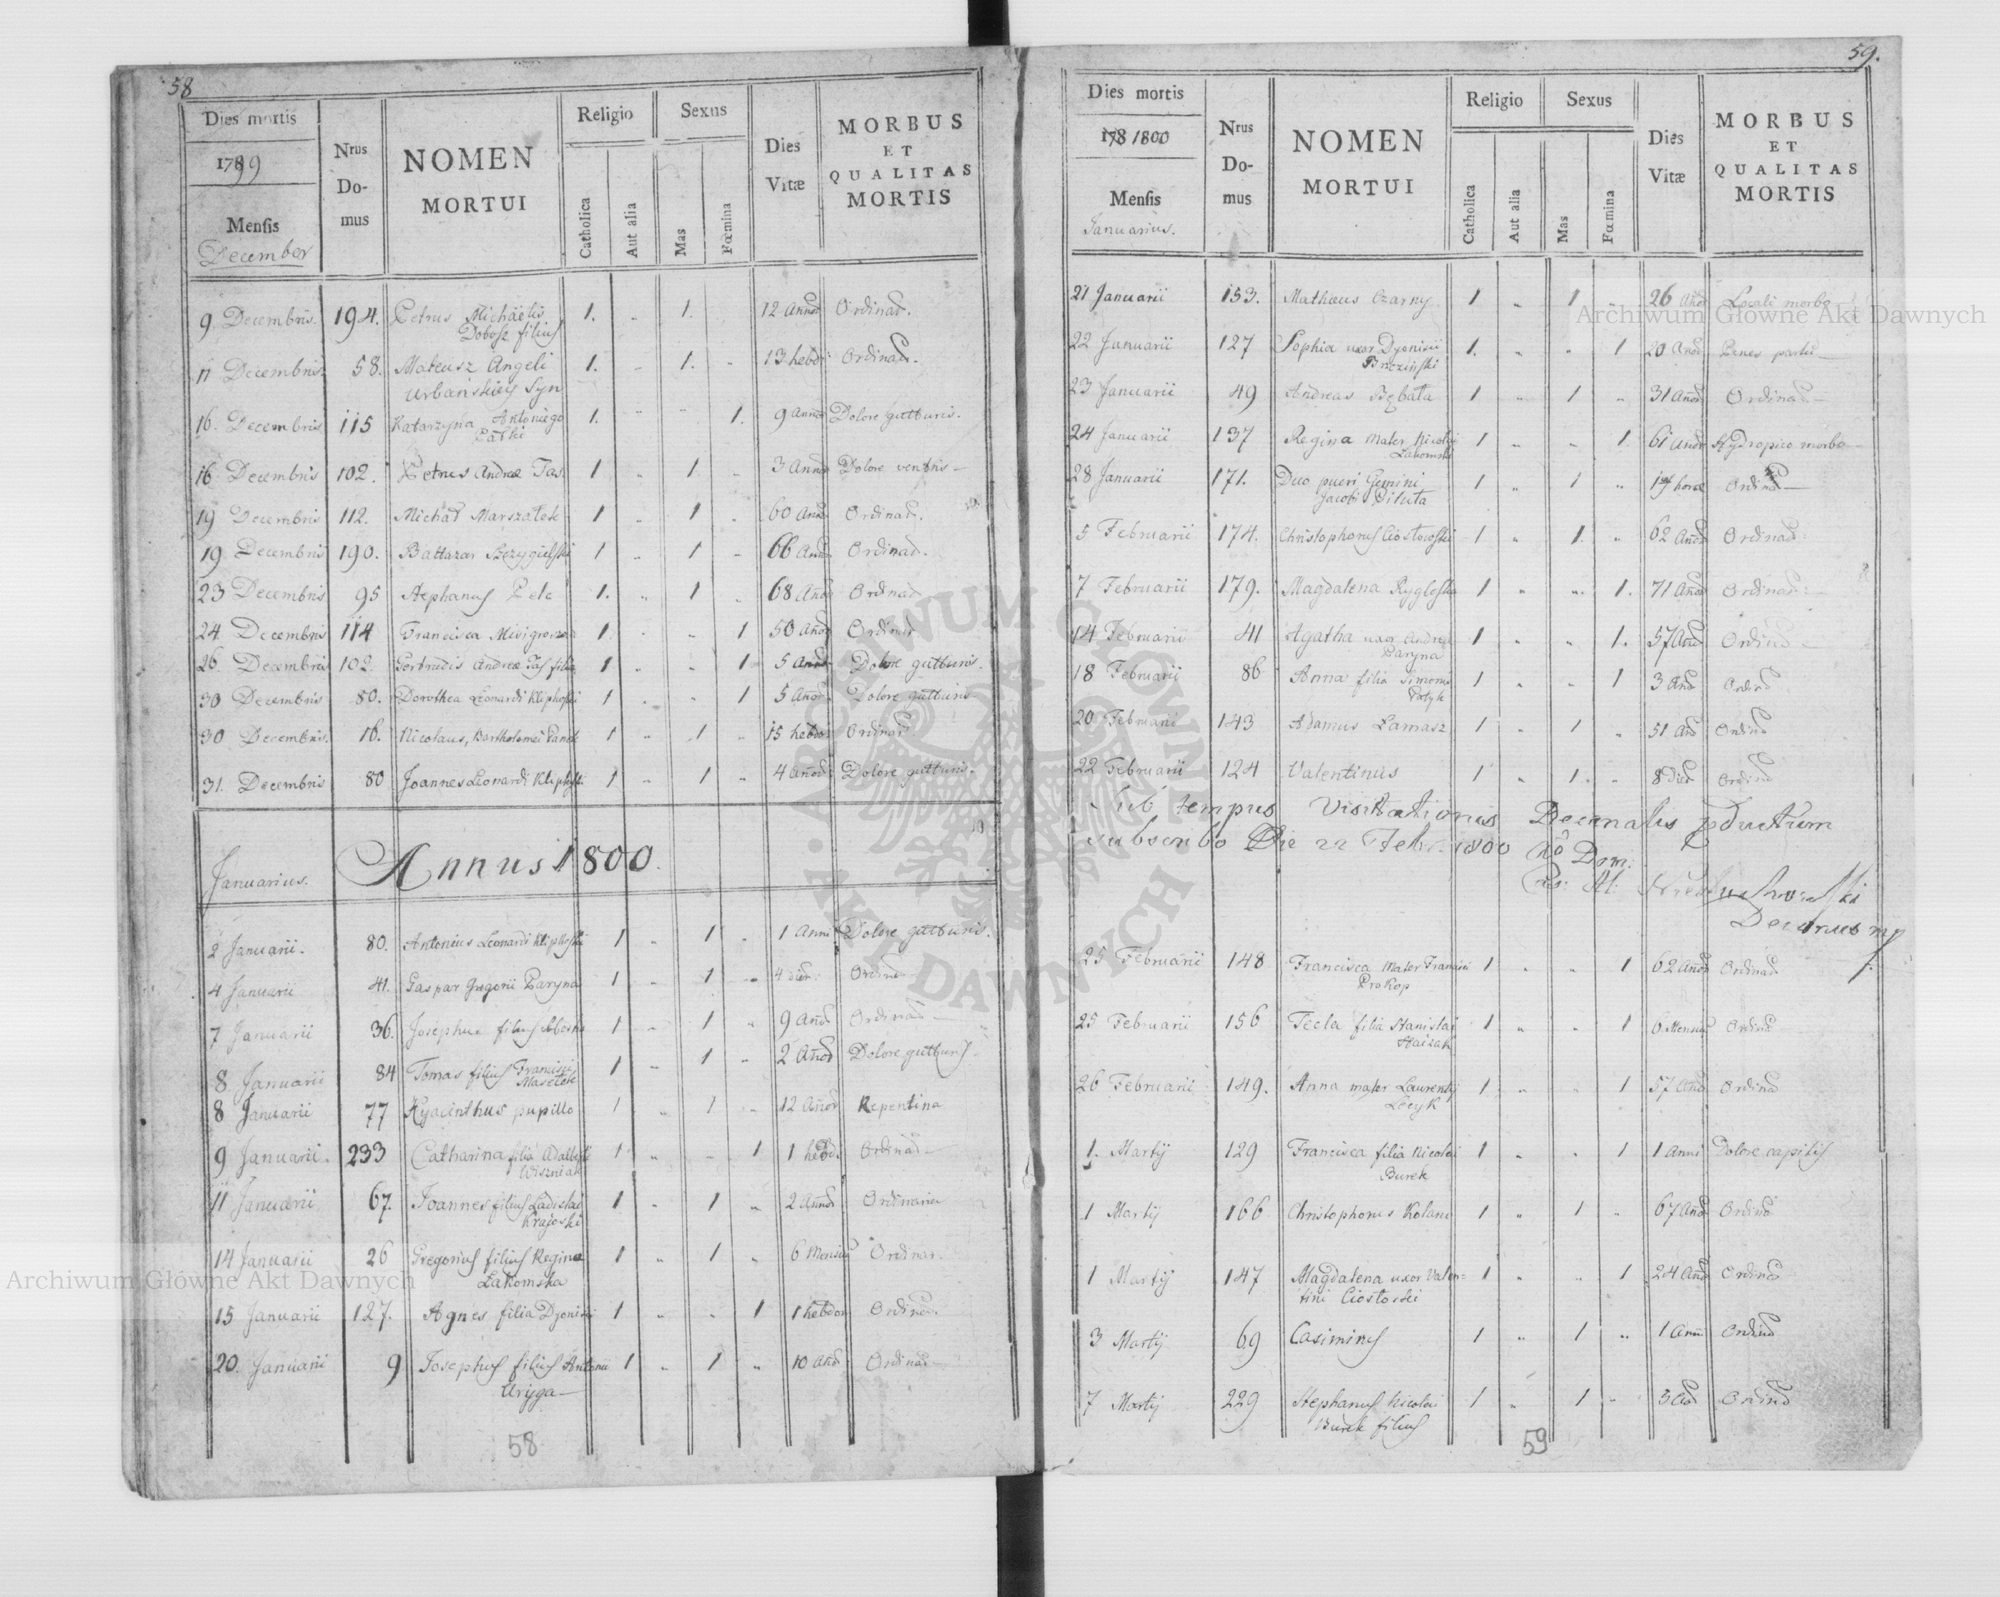 58
Dies mortis
1799
Mensis
December
Nrus
Do-
mus
NOMEN
MORTUI
Religio
Catholica
Aut alia
Sexus
Mas
Fœmina
Dies
Vitæ
MORBUS
ET
QUALITAS
MORTIS
9 Decembris. 194. Petrus Michaelis 1. „ 1. 12 Annor Ordinar.
Dobosz filius
11 Decembris 58. Mateusz Angeli 1. „ 1. „ 13 hebd: Ordinar.
Urbańskiey Syn
16. Decembris 115 Katarzyna Antoniego 1. „ „ 1. 9 Annor Dolore gutturis.
16 Decembris 102. Petrus Andreæ Tas 1 „ 1. „ 3 Annor Dolore ventris
19 Decembris 112. Michał Marszałek 1 „ 1 „ 60 Annor Ordinar.
19. Decembris 190. Baltazar 1 „ 1 „ 66 Annor Ordinar.
23 Decembris 95 Stephanus Pelc 1. „ 1 „ 68 Añor Ordinar
24. Decembris 114 Francisca 1. „ „ 1 50 Añor Ordinar
26. Decembris 102. Gertrudis Andreæ Tas filia 1 „ „ 1 5 Annor Dolore gutturis.
30 Decembris 80. Dorothea Leonardi 1 „ „ 1 5 Añor Dolore gutturis
30 Decembris. 16. Nicolaus, Bartholomei 1 „ 1 „ 15 hebdo: Ordinar
31. Decembris 80 Joannes Leonardi 1 „ 1 „ 4 Añor Dolore gutturis.
Januarius. Annus 1800.
2 Januarii. 80. Antonius Leonardi 1 „ 1 „ 1 Anni Dolore gutturis.
4 Januarii 41. Gaspar Gregorii Paryna 1 „ 1 „ 4 dier: Ordinar
7 Januarii 36. Josephus filius 1 „ 1 „ 9 Añor Ordinar
8 Januarii 84 Tomas filius Francisci 1 „ 1 „ 2 Añor Dolore gutturis
8 Januarii 77 Hyacinthus pupillo 1 „ 1 „ 12 Añor Repentina
9 Januarii. 233 Catharina filia Adalberti 1 „ „ 1 1 hebd: Ordinar
Wiśniak
11 Januarii 67. Joannes filius Ladislai 1 „ 1 „ 2 Annor Ordinaria
Krajoski
14 Januarii 26 Gregorius filius Reginæ 1 „ 1 „ 6 Mensium Ordinar.
Lakomska
15 Januarii 127. Agnes filia Djonisi 1 „ „ 1 1 hebdom Ordinar.
20. Januarii 9 Josephus filius Antonii 1 „ 1 „ 10 Añor Ordinar
Uryga
58
59.
Dies mortis
178 1800
Mensis
Januarius.
Nrus
Do-
mus
NOMEN
MORTUI
Religio
Catholica
Aut alia
Sexus
Mas
Fœmina
Dies
Vitæ
MORBUS
ET
QUALITAS
MORTIS
21 Januarii 153. Mathæus Czarny 1 „ 1 „ 26 Añor Locali morbo
22 Januarii 127 Sophia uxor Djonisii 1. „ „ 1 20 Añor Penes partu
Brzezinski
23 Januarii 49 Andreas Bębała 1 „ 1 „ 31 Añor Ordinar
24 Januarii 137 Regina Mater Nicolai 1 „ „ 1. 61 Añor Hydropico morbo
28 Januarii 171. Duo pueri Gemini 1 „ 1 „ 17 horæ Ordinar
Jacobi Piluta
5 Februarii 174. Christophorus Ciostowski 1 „ 1. „ 62 Añor Ordinar
7 Februarii 179. Magdalena 1 „ „ 1. 71 Añor Ordinar.
14 Februarii 41 Agatha uxor Andreæ 1 „ „ 1. 57 Añor Ordinar
Paryna
18 Februarii 86 Anna filia Simonis 1 „ „ 1 3 Año Ordinr
Patyk
20 Februarii 143 Adamus Lamasz 1 „ 1 „ 51 Año Ordinr
22 Februarii 124 Valentinus 1 „ 1. „ 8 Dier Ordinr
Sub tempus Visitationis Decanalis productum
subscribo Die 22 Febr. 1800
Decanus mp
25 Februarii 148 Francisca Mater Francisci 1 „ „ 1 62 Añor Ordinar
Prokop
25 Februarii 156 Tecla filia Stanislai 1 „ „ 1 6 Mensium Ordinr
26 Februarii 149. Anna mater Laurentij 1 „ „ 1 57 Año Ordinr
1. Martij 129 Francisca filia Nicolai 1 „ „ 1 1 Anni Dolore capitis
Burek
1 Martij 166 Christophorus Kolano 1 „ 1 „ 67 Añor Ordinr
1 Martij 147 Magdalena uxor Valen= 1 „ „ 1 24 Año Ordinar
tini Ciostoski
3 Martij 69 Casimirus 1 „ 1 „ 1 Anni Ordinr
7 Martij 229 Stephanus Nicolai 1 „ 1 „ 3 Año Ordinr
Burek filius
59
Archiwum Główne Akt Dawnych
Archiwum Główne Akt Dawnych
ARCHIWUM GŁÓWNE · AKT DAWNYCH ·